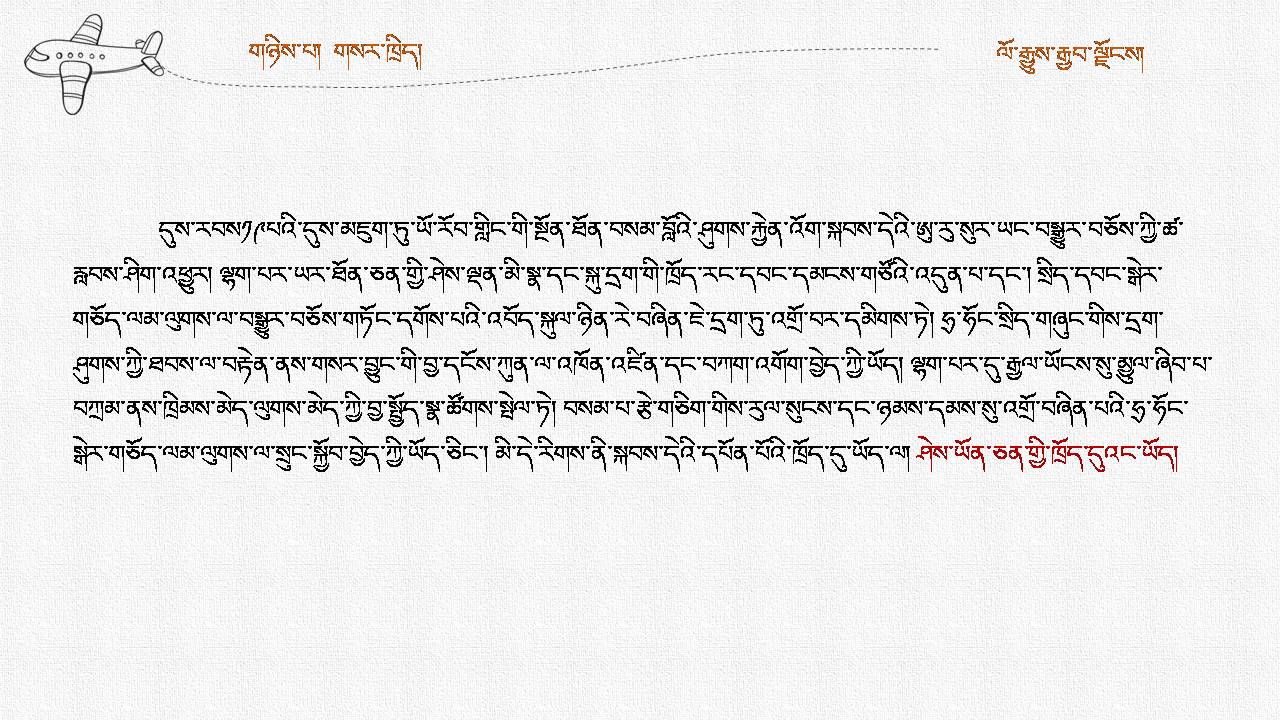 གཉིས་པ། གསར་ཁྲིད།
ལོ་རྒྱུས་རྒྱབ་ལྗོངས།
དུས་རབས༡༩པའི་དུས་མཇུག་ཏུ་ཡོ་རོབ་གླིང་གི་སྔོན་ཐོན་བསམ་བློའི་ཤུགས་རྐྱེན་འོག་སྐབས་དེའི་ཨུ་རུ་སུར་ཡང་བསྒྱུར་བཅོས་ཀྱི་ཚ་
རླབས་ཤིག་འཕྱུར། ལྷག་པར་ཡར་ཐོན་ཅན་གྱི་ཤེས་ལྡན་མི་སྣ་དང་སྐུ་དྲག་གི་ཁྲོད་རང་དབང་དམངས་གཙོའི་འདུན་པ་དང་། སྲིད་དབང་སྒེར་
གཅོད་ལམ་ལུགས་ལ་བསྒྱུར་བཅོས་གཏོང་དགོས་པའི་འབོད་སྐུལ་ཉིན་རེ་བཞིན་ཇེ་དྲག་ཏུ་འགྲོ་བར་དམིགས་ཏེ། ཧྲ་ཧོང་སྲིད་གཞུང་གིས་དྲག་
ཤུགས་ཀྱི་ཐབས་ལ་བརྟེན་ནས་གསར་བྱུང་གི་བྱ་དངོས་ཀུན་ལ་འཁོན་འཛིན་དང་བཀག་འགོག་བྱེད་ཀྱི་ཡོད། ལྷག་པར་དུ་རྒྱལ་ཡོངས་སུ་མྱུལ་ཞིབ་པ་
བཀྲམ་ནས་ཁྲིམས་མེད་ལུགས་མེད་ཀྱི་བྱ་སྤྱོད་སྣ་ཚོགས་སྤེལ་ཏེ། བསམ་པ་རྩེ་གཅིག་གིས་རུལ་སུངས་དང་ཉམས་དམས་སུ་འགྲོ་བཞིན་པའི་ཧྲ་ཧོང་
སྒེར་གཅོད་ལམ་ལུགས་ལ་སྲུང་སྐྱོབ་བྱེད་ཀྱི་ཡོད་ཅིང་། མི་དེ་རིགས་ནི་སྐབས་དེའི་དཔོན་པོའི་ཁྲོད་དུ་ཡོད་ལ། ཤེས་ཡོན་ཅན་གྱི་ཁྲོད་དུའང་ཡོད།